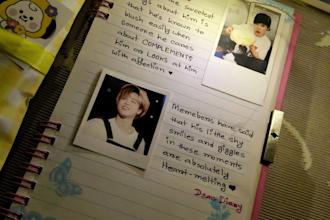 sweetest
about him is
that he's known to
blush easily when
someone he cares
about COMPLEMENTS
him or LOOKS at him
with affection
Memebers have said
that his little shy
smiles and giggles
in these moments
are absolutely
Heart-melting
Dear Diary